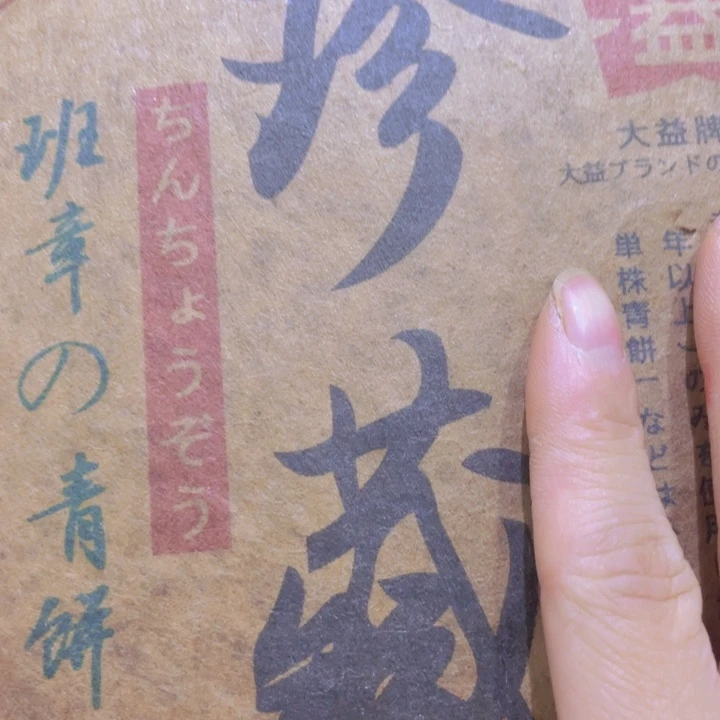 益
大益牌
大益ブランドの
年以上
単株青餅
など
珍藏
ちんちょうぞう
班章の青餅